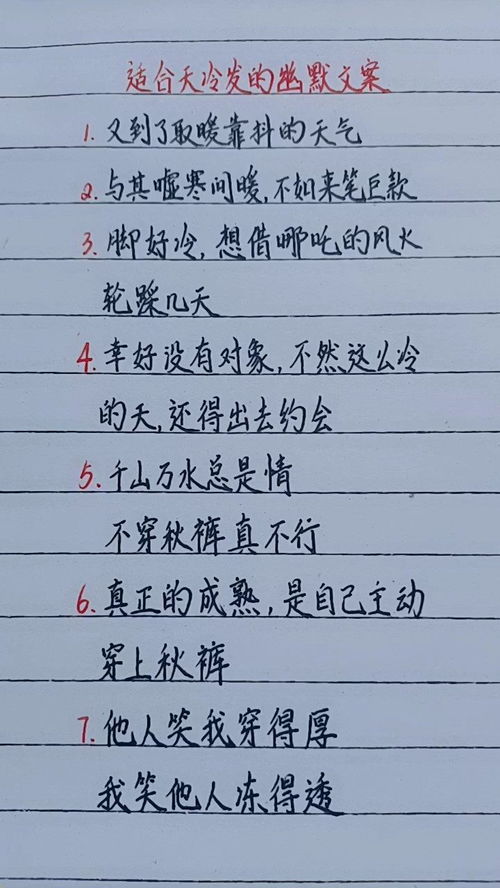 适合天冷发的幽默文案
1. 又到了取暖靠抖的天气
2. 与其嘘寒问暖,不如来笔巨款
3. 脚好冷,想借哪吒的风火
轮踩几天
4. 幸好没有对象,不然这么冷
的天,还得出去约会
5. 千山万水总是情
不穿秋裤真不行
6. 真正的成熟,是自己主动
穿上秋裤
7. 他人笑我穿得厚
我笑他人冻得透